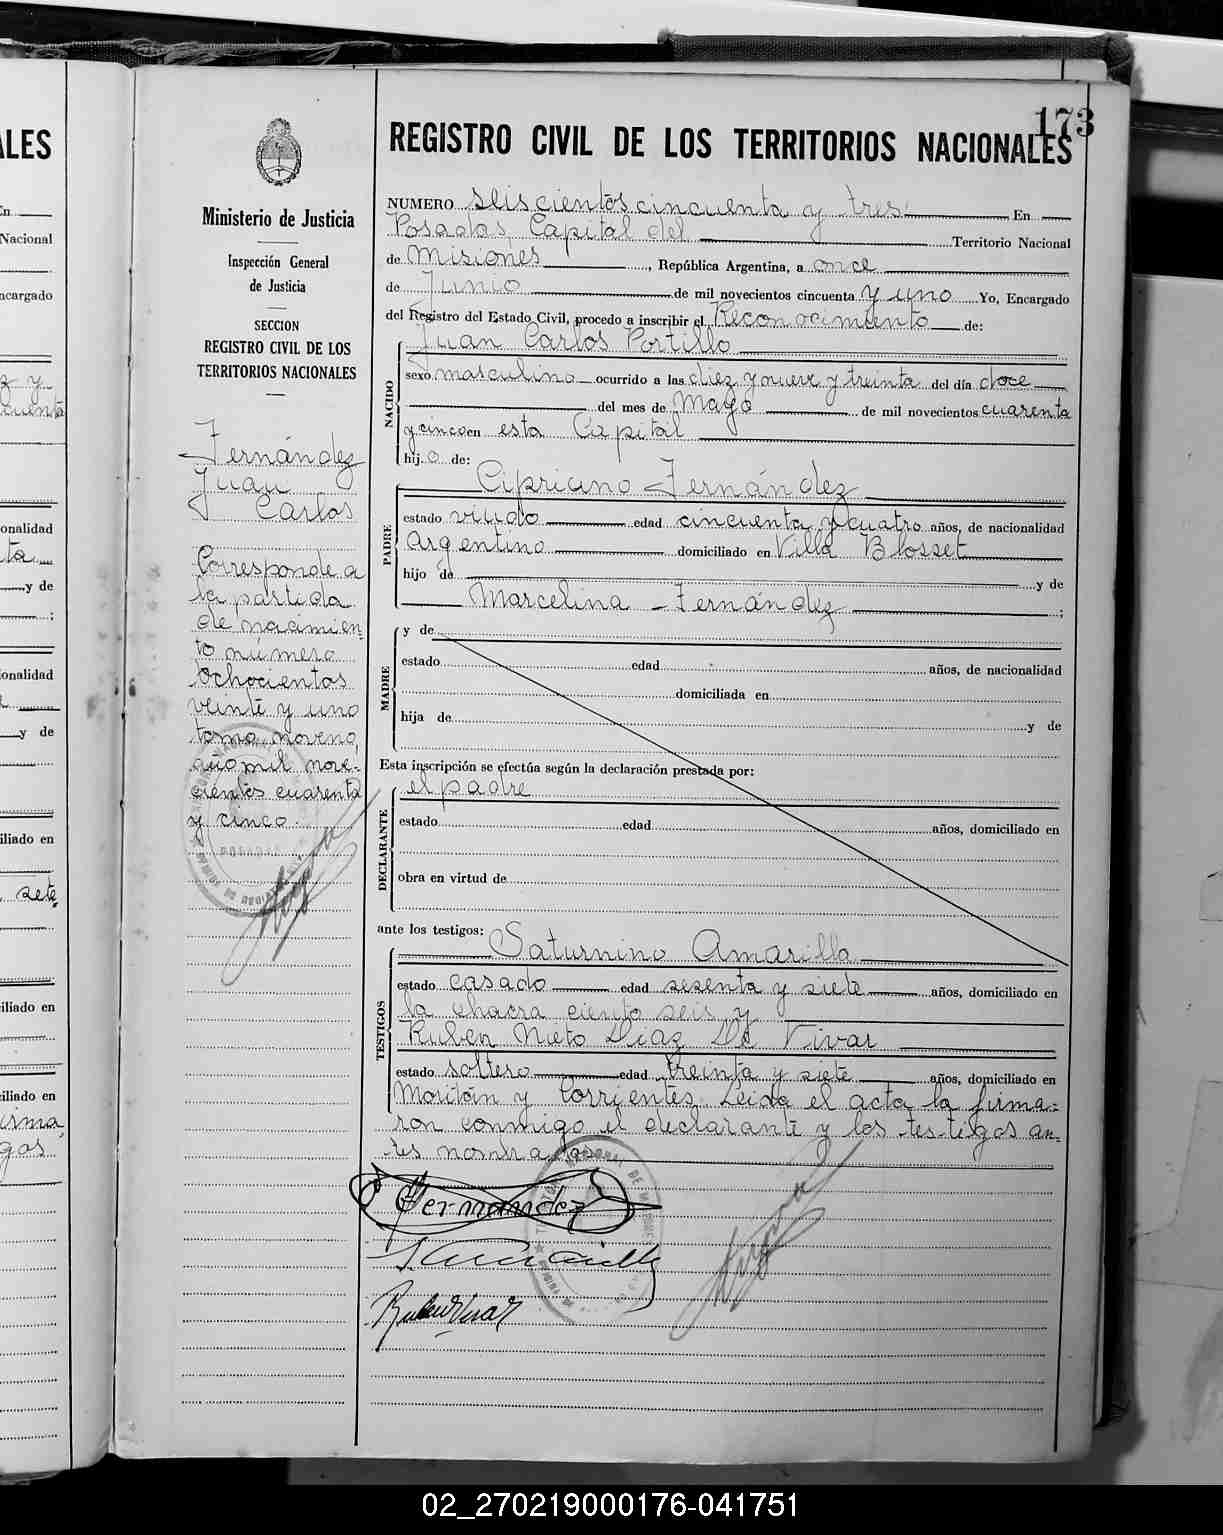 173
REGISTRO CIVIL DE LOS TERRITORIOS NACIONALES
Ministerio de Justicia
Inspección General
de Justicia
SECCION
REGISTRO CIVIL DE LOS
TERRITORIOS NACIONALES
Fernández
Juan
Carlos
Corresponde a
la partida
de nacimien-
to número
ochocientos
veinte y uno
tomo noveno,
año mil nove-
cientos cuarenta
y cinco.
NUMERO seiscientos cincuenta y tres En
Posadas Capital del Territorio Nacional
de Misiones, República Argentina, a once
de Junio de mil novecientos cincuenta y uno Yo, Encargado
del Registro del Estado Civil, procedo a inscribir el Reconocimiento de:
NACIDO
Juan Carlos Portillo
sexo masculino ocurrido a las diez y nueve y treinta del día doce
del mes de Mayo de mil novecientos cuarenta
y cinco en esta Capital
hijo de:
PADRE
Cipriano Fernández
estado viudo edad cincuenta y cuatro años, de nacionalidad
Argentino domiciliado en Villa Blosset
hijo de y de
Marcelina Fernández ;
MADRE
y de
estado edad años, de nacionalidad
domiciliada en
hija de y de
Esta inscripción se efectúa según la declaración prestada por:
DECLARANTE
el padre
estado edad años, domiciliado en
obra en virtud de
ante los testigos:
TESTIGOS
Saturnino Amarilla
estado casado edad sesenta y siete años, domiciliado en
la chacra ciento seis y
Ruben Nieto Diaz De Vivar
estado soltero edad treinta y siete años, domiciliado en
Moritán y Corrientes. Leída el acta la firma-
ron conmigo el declarante y los testigos an-
tes nombrados
C Fernandez
S. Amarilla
Ruben Vivar
ALES
En
Nacional
ncargado
z y
cuenta
onalidad
ta
y de
;
onalidad
y de
iliado en
sete
iliado en
iliado en
firma
gos
02_270219000176-041751